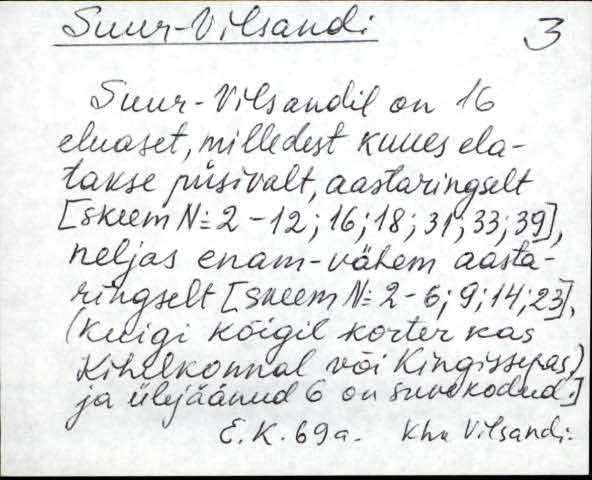 Suur-Vilsandi 3
Suur-Vilsandil on 16
eluaset, milledest kuues ela-
takse püsivalt, aastaringselt
[skeem №2 - 12; 16; 18; 31; 33; 39],
neljas enam-vähem aasta-
ringselt [skeem №2 - 6; 9; 14; 23],
(kuigi kõigil korter kas
Kihelkonnal või Kingissepas,)
ja ülejäänud 6 on suvekodud.]
E.K. 69a. Khk Vilsandi.